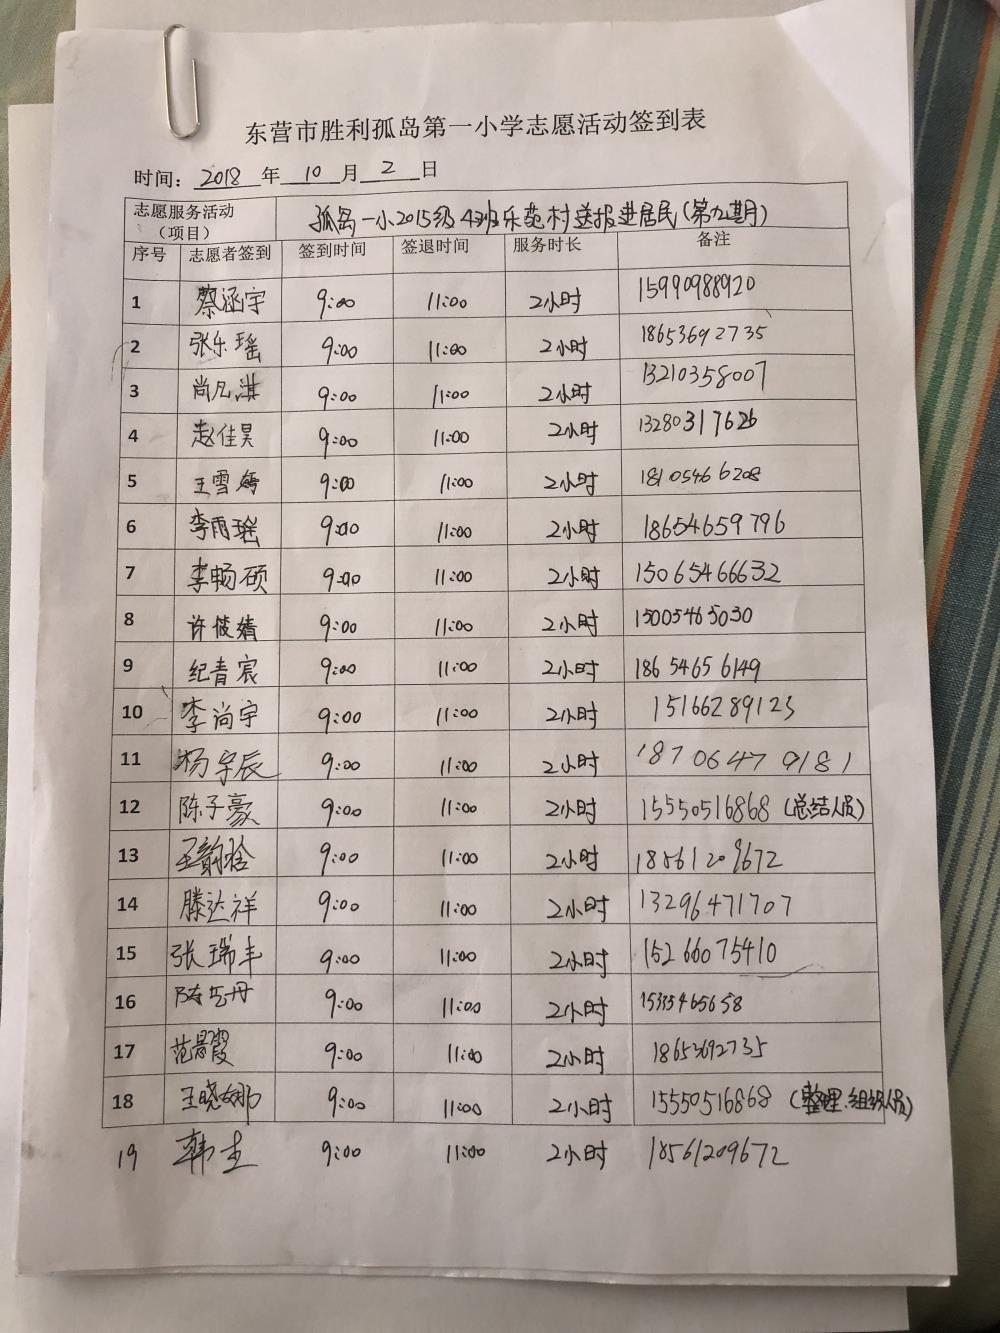 东营市胜利孤岛第一小学志愿活动签到表
时间：2018年10月2日
志愿服务活动（项目） 孤岛一小2015级4班乐苑村送报进居民（第九期）
序号 志愿者签到 签到时间 签退时间 服务时长 备注
1 蔡涵宇 9:00 11:00 2小时 15990988920
2 张乐瑶 9:00 11:00 2小时 18653692735
3 尚凡淇 9:00 11:00 2小时 13210358007
4 赵佳昊 9:00 11:00 2小时 13280317626
5 王雪嫣 9:00 11:00 2小时 18105466208
6 李雨瑶 9:00 11:00 2小时 18654659796
7 李畅硕 9:00 11:00 2小时 15065466632
8 许筱婧 9:00 11:00 2小时 15005465030
9 纪青宸 9:00 11:00 2小时 18654656149
10 李尚宇 9:00 11:00 2小时 15166289123
11 杨宇辰 9:00 11:00 2小时 18706479181
12 陈子豪 9:00 11:00 2小时 15550516868（总结人员）
13 王韵晗 9:00 11:00 2小时 18561209672
14 滕达祥 9:00 11:00 2小时 13296471707
15 张瑞丰 9:00 11:00 2小时 15266075410
16 陈 丹 9:00 11:00 2小时 15335465658
17 范景霞 9:00 11:00 2小时 18653692735
18 王晓娜 9:00 11:00 2小时 15550516868（整理.组织人员）
19 韩 9:00 11:00 2小时 18561209672